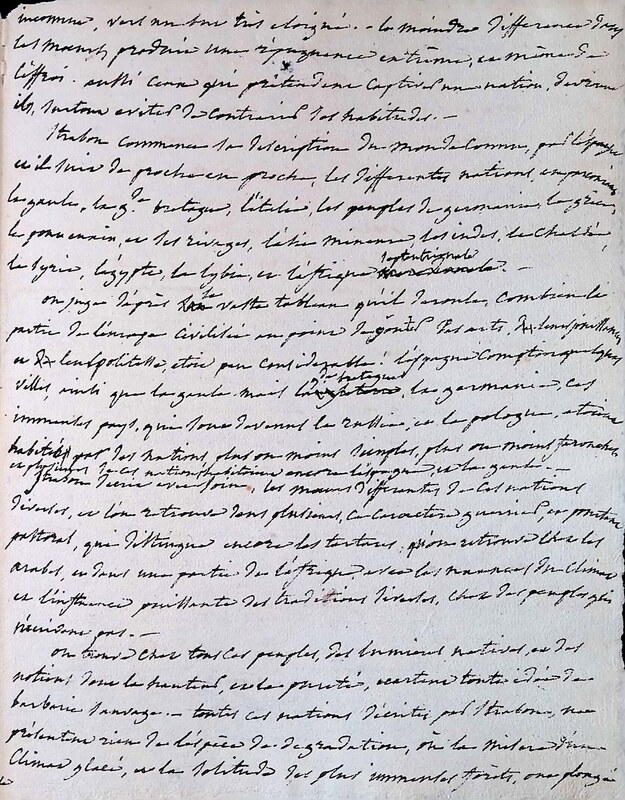 inconnu, vers un but très eloigné. - la moindre difference dans
les moeurs produit une repugnance extrême, et même de
l'effroi. aussi ceux qui prétendent captiver une nation, devroient
ils, surtout eviter de contrarier les habitudes. -
Strabon commence sa description du monde connu, par l'espagne
et il suit de proche en proche, les differentes nations, en parcourant
la gaule, la g.de bretagne, l'italie, les peuples de germanie, la grèce,
le pont euxin, et ses rivages, l'asie mineure, les indes, la chaldée,
la syrie, l'égypte, la lybie, et l'afrique septentrionale. -
on juge d'après le vaste tableau qu'il deroule, combien la
partie de l'univers civilisée au point de goûter les arts, leurs jouissances
et leur politesse, etoit peu considerable! l'espagne comptoit quelques
villes, ainsi que la gaule mais la g.de bretagne, la germanie, ces
immenses pays, qui sont devenus la russie, et la pologne, etoient
habités par des nations plus ou moins simples, plus ou moins farouches,
et plusieurs de ces nations habitoient encore l'espagne, et la gaule. -
Strabon decrit avec soin, les moeurs differentes de ces nations
diverses, et l'on retrouve dans plusieurs, ce caractere guerrier, et pourtant
pastoral, qui distingue encore les tartares, qu'on retrouve chez les
arabes, et dans une partie de l'afrique, avec les nuances du climat
et l'influence puissante des traditions diverses, chez des peuples qui
n'ecrivent pas. -
on trouve chez tous ces peuples, des lumieres natives, et des
notions dont la hauteur, et la pureté, ecartent toute idée de
barbarie sauvage. - toutes ces nations décrites par Strabon, ne
présentent rien de l'espèce de degradation, où la misere d'un
climat glacé, et la solitude des plus immenses forêts, ont plongé